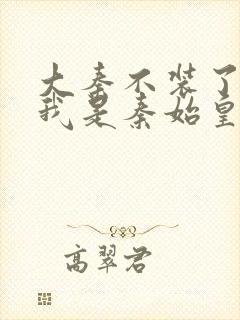 大秦不装了
我是秦始皇
高翠君